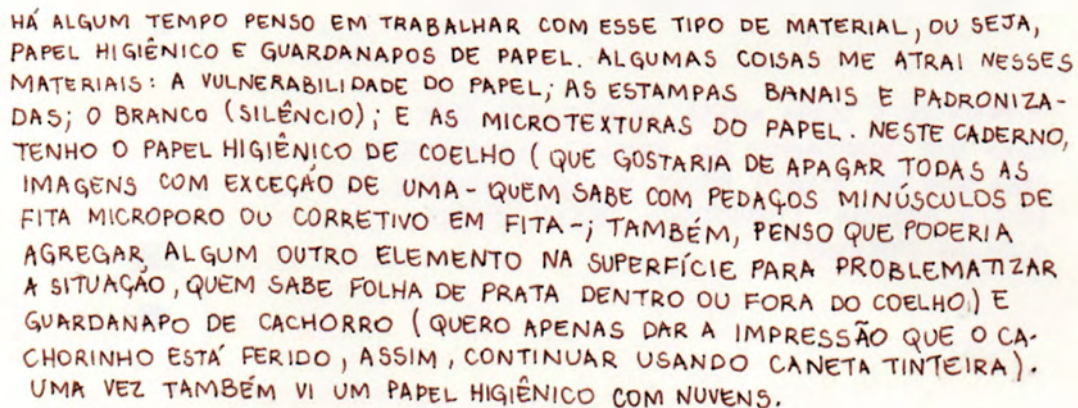 HÁ ALGUM TEMPO PENSO EM TRABALHAR COM ESSE TIPO DE MATERIAL, OU SEJA,
PAPEL HIGIÊNICO E GUARDANAPOS DE PAPEL. ALGUMAS COISAS ME ATRAI NESSES
MATERIAIS: A VULNERABILIDADE DO PAPEL; AS ESTAMPAS BANAIS E PADRONIZA-
DAS; O BRANCO (SILÊNCIO); E AS MICROTEXTURAS DO PAPEL. NESTE CADERNO,
TENHO O PAPEL HIGIÊNICO DE COELHO (QUE GOSTARIA DE APAGAR TODAS AS
IMAGENS COM EXCEÇÃO DE UMA - QUEM SABE COM PEDAÇOS MINÚSCULOS DE
FITA MICROPORO OU CORRETIVO EM FITA -; TAMBÉM, PENSO QUE PODERIA
AGREGAR ALGUM OUTRO ELEMENTO NA SUPERFÍCIE PARA PROBLEMATIZAR
A SITUAÇÃO, QUEM SABE FOLHA DE PRATA DENTRO OU FORA DO COELHO) E
GUARDANAPO DE CACHORRO (QUERO APENAS DAR A IMPRESSÃO QUE O CA-
CHORINHO ESTÁ FERIDO, ASSIM, CONTINUAR USANDO CANETA TINTEIRA).
UMA VEZ TAMBÉM VI UM PAPEL HIGIÊNICO COM NUVENS.